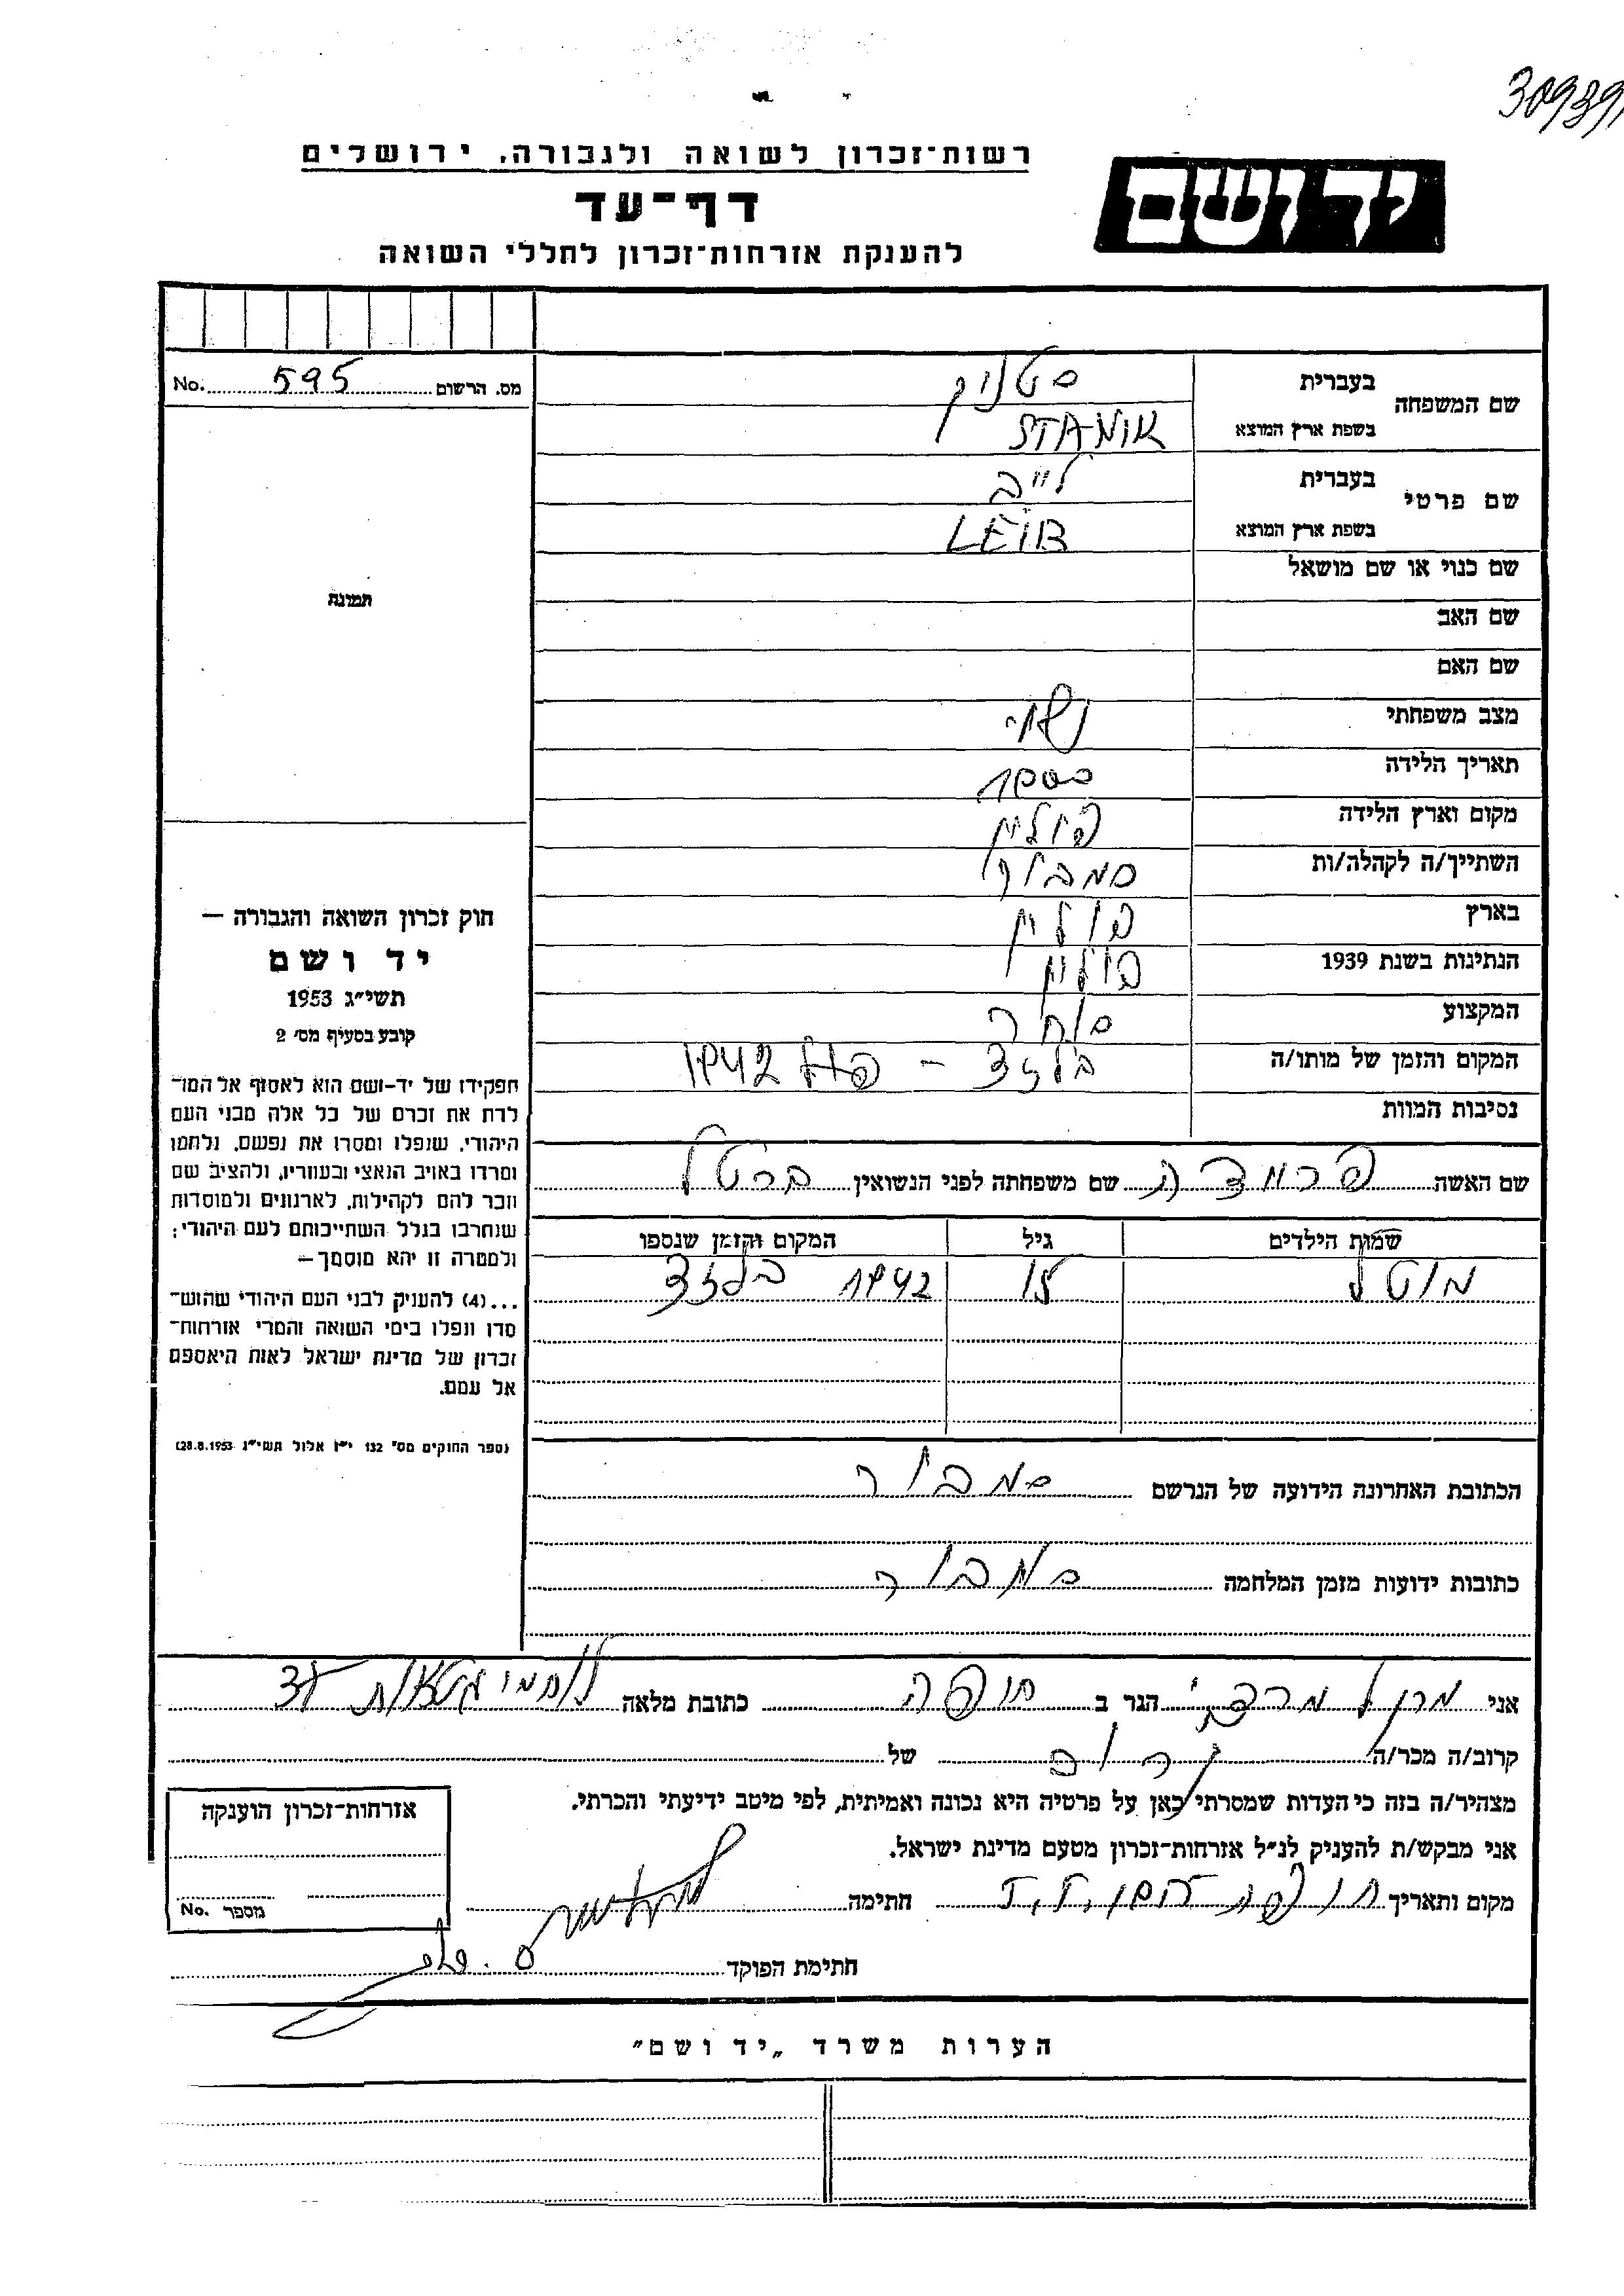 309391
רשות־זכרון לשואה ולגבורה. ירושלים
יד ושם
דף־עד
להענקת אזרחות־זכרון לחללי השואה
מס. הרשום 595 No.
שם המשפחה בעברית סטניק
בשפת ארץ המוצא STANIK
שם פרטי בעברית לייב
בשפת ארץ המוצא LEIB
שם כנוי או שם מושאל
שם האב
שם האם
מצב משפחתי נשוי
תאריך הלידה 1900
מקום וארץ הלידה פולין
השתייך/ה לקהלה/ות סמבור
בארץ פולין
הנתינות בשנת 1939 פולין
המקצוע סוחר
המקום והזמן של מותו/ה בלזץ - 1942
נסיבות המוות
תמונה
חוק זכרון השואה והגבורה —
יד ושם
תשי״ג 1953
קובע בסעיף מס׳ 2
תפקידו של יד-ושם הוא לאסוף אל המו־
לדת את זכרם של כל אלה מבני העם
היהודי, שנפלו ומסרו את נפשם, נלחמו
ומרדו באויב הנאצי ובעוזריו, ולהציב שם
וזכר להם לקהילות, לארגונים ולמוסדות
שנחרבו בגלל השתייכותם לעם היהודי;
ולמטרה זו יהא מוסמך—
...(4) להעניק לבני העם היהודי שהוש־
מדו ונפלו בימי השואה והמרי אזרחות־
זכרון של מדינת ישראל לאות היאספם
אל עמם.
(ספר החוקים מס׳ 132 י״ז אלול תשי״ג 28.8.1953)
שם האשה שם משפחתה לפני הנשואין ברטל
שמות הילדים גיל המקום והזמן שנספו
מוטל 15 1942 בלזץ
הכתובת האחרונה הידועה של הנרשם סמבור
כתובות ידועות מזמן המלחמה סמבור
אני הגר ב חיפה כתובת מלאה לוחמי גטאות
קרוב/ה מכר/ה קרוב של
מצהיר/ה בזה כי העדות שמסרתי כאן על פרטיה היא נכונה ואמיתית, לפי מיטב ידיעתי והכרתי.
אני מבקש/ת להעניק לנ״ל אזרחות־זכרון מטעם מדינת ישראל.
מקום ותאריך חיפה חתימה
חתימת הפוקד
אזרחות־זכרון הוענקה
מספר No.
הערות משרד „יד ושם״